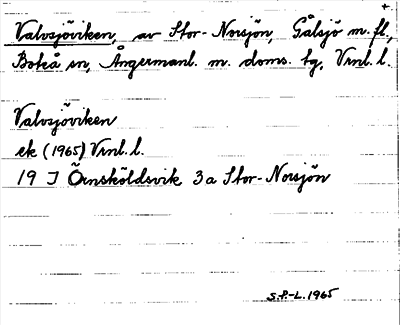 +
Valvsjöviken, av Stor-Norsjön, Gålsjö m. fl,
Boteå sn, Ångermanl. m. doms. tg, Vrnl. l.
Valvsjöviken
ek (1965) Vrnl. l.
19 J Örnsköldsvik 3a Stor-Norsjön
S.P.-L. 1965